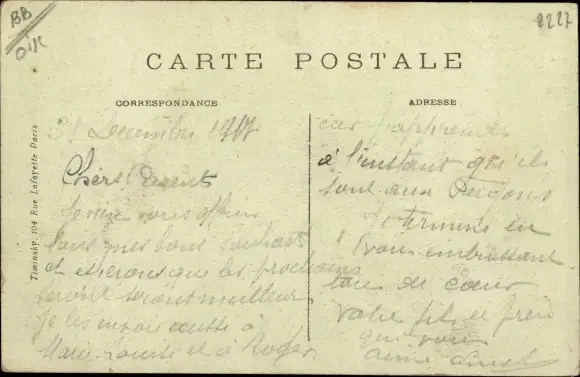 BB
2227
CARTE POSTALE
CORRESPONDANCE
ADRESSE
Timinsky, 104 Rue Lafayette Paris
31 Decembre 1917
Chers Parents
Je viens vous offrir
tous mes bons souhaits
et esperons que les prochains
seront meilleurs
Je les envoie aussi à
Marie-Louise et à Roger
car j'apprends
à l'instant qu'ils
sont aux
Je termine en
vous embrassant
tous de coeur
votre fils et frère
qui vous
aime